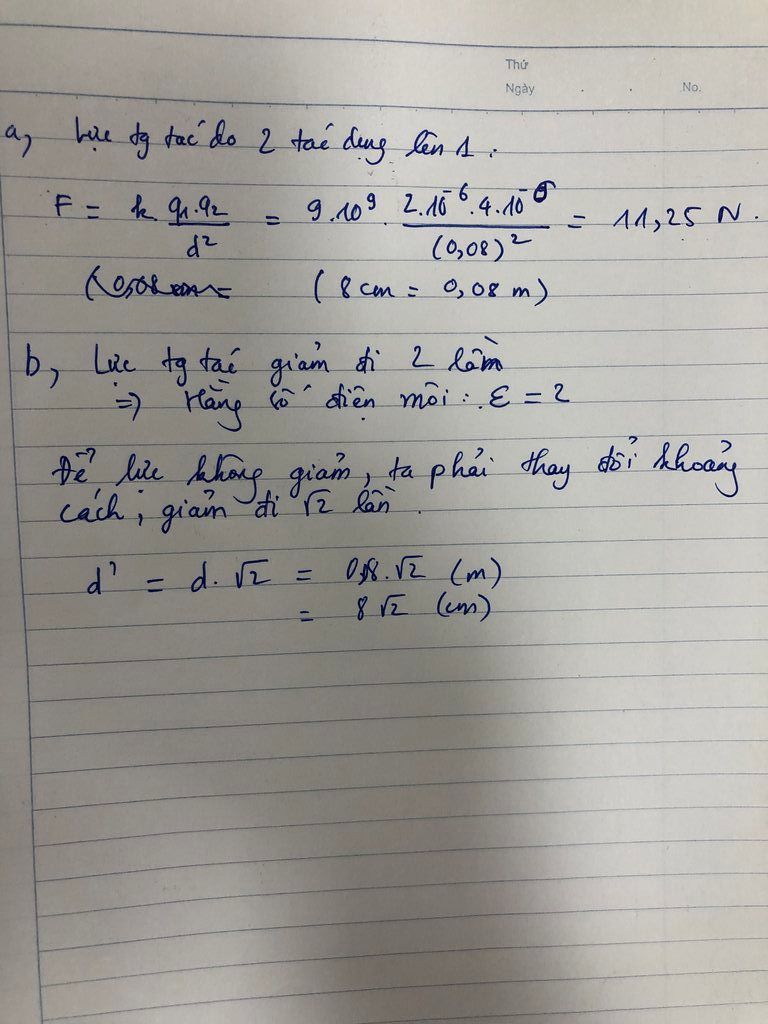 Thứ
Ngày . . No.
a, Lực tg tác do 2 tác dụng lên 1 :
F = k q1.q2 / d² = 9.10⁹. 2.10⁻⁶.4.10⁻⁶ / (0,08)² = 11,25 N.
(8cm = 0,08 m)
b, Lực tg tác giảm đi 2 lần
=> Hằng số điện môi : ε = 2
Để lực không giảm, ta phải thay đổi khoảng
cách, giảm đi √2 lần.
d' = d.√2 = 0,8.√2 (m)
= 8√2 (cm)